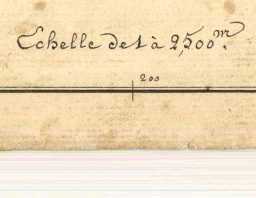 Echelle de 1 à 2,500m.
200